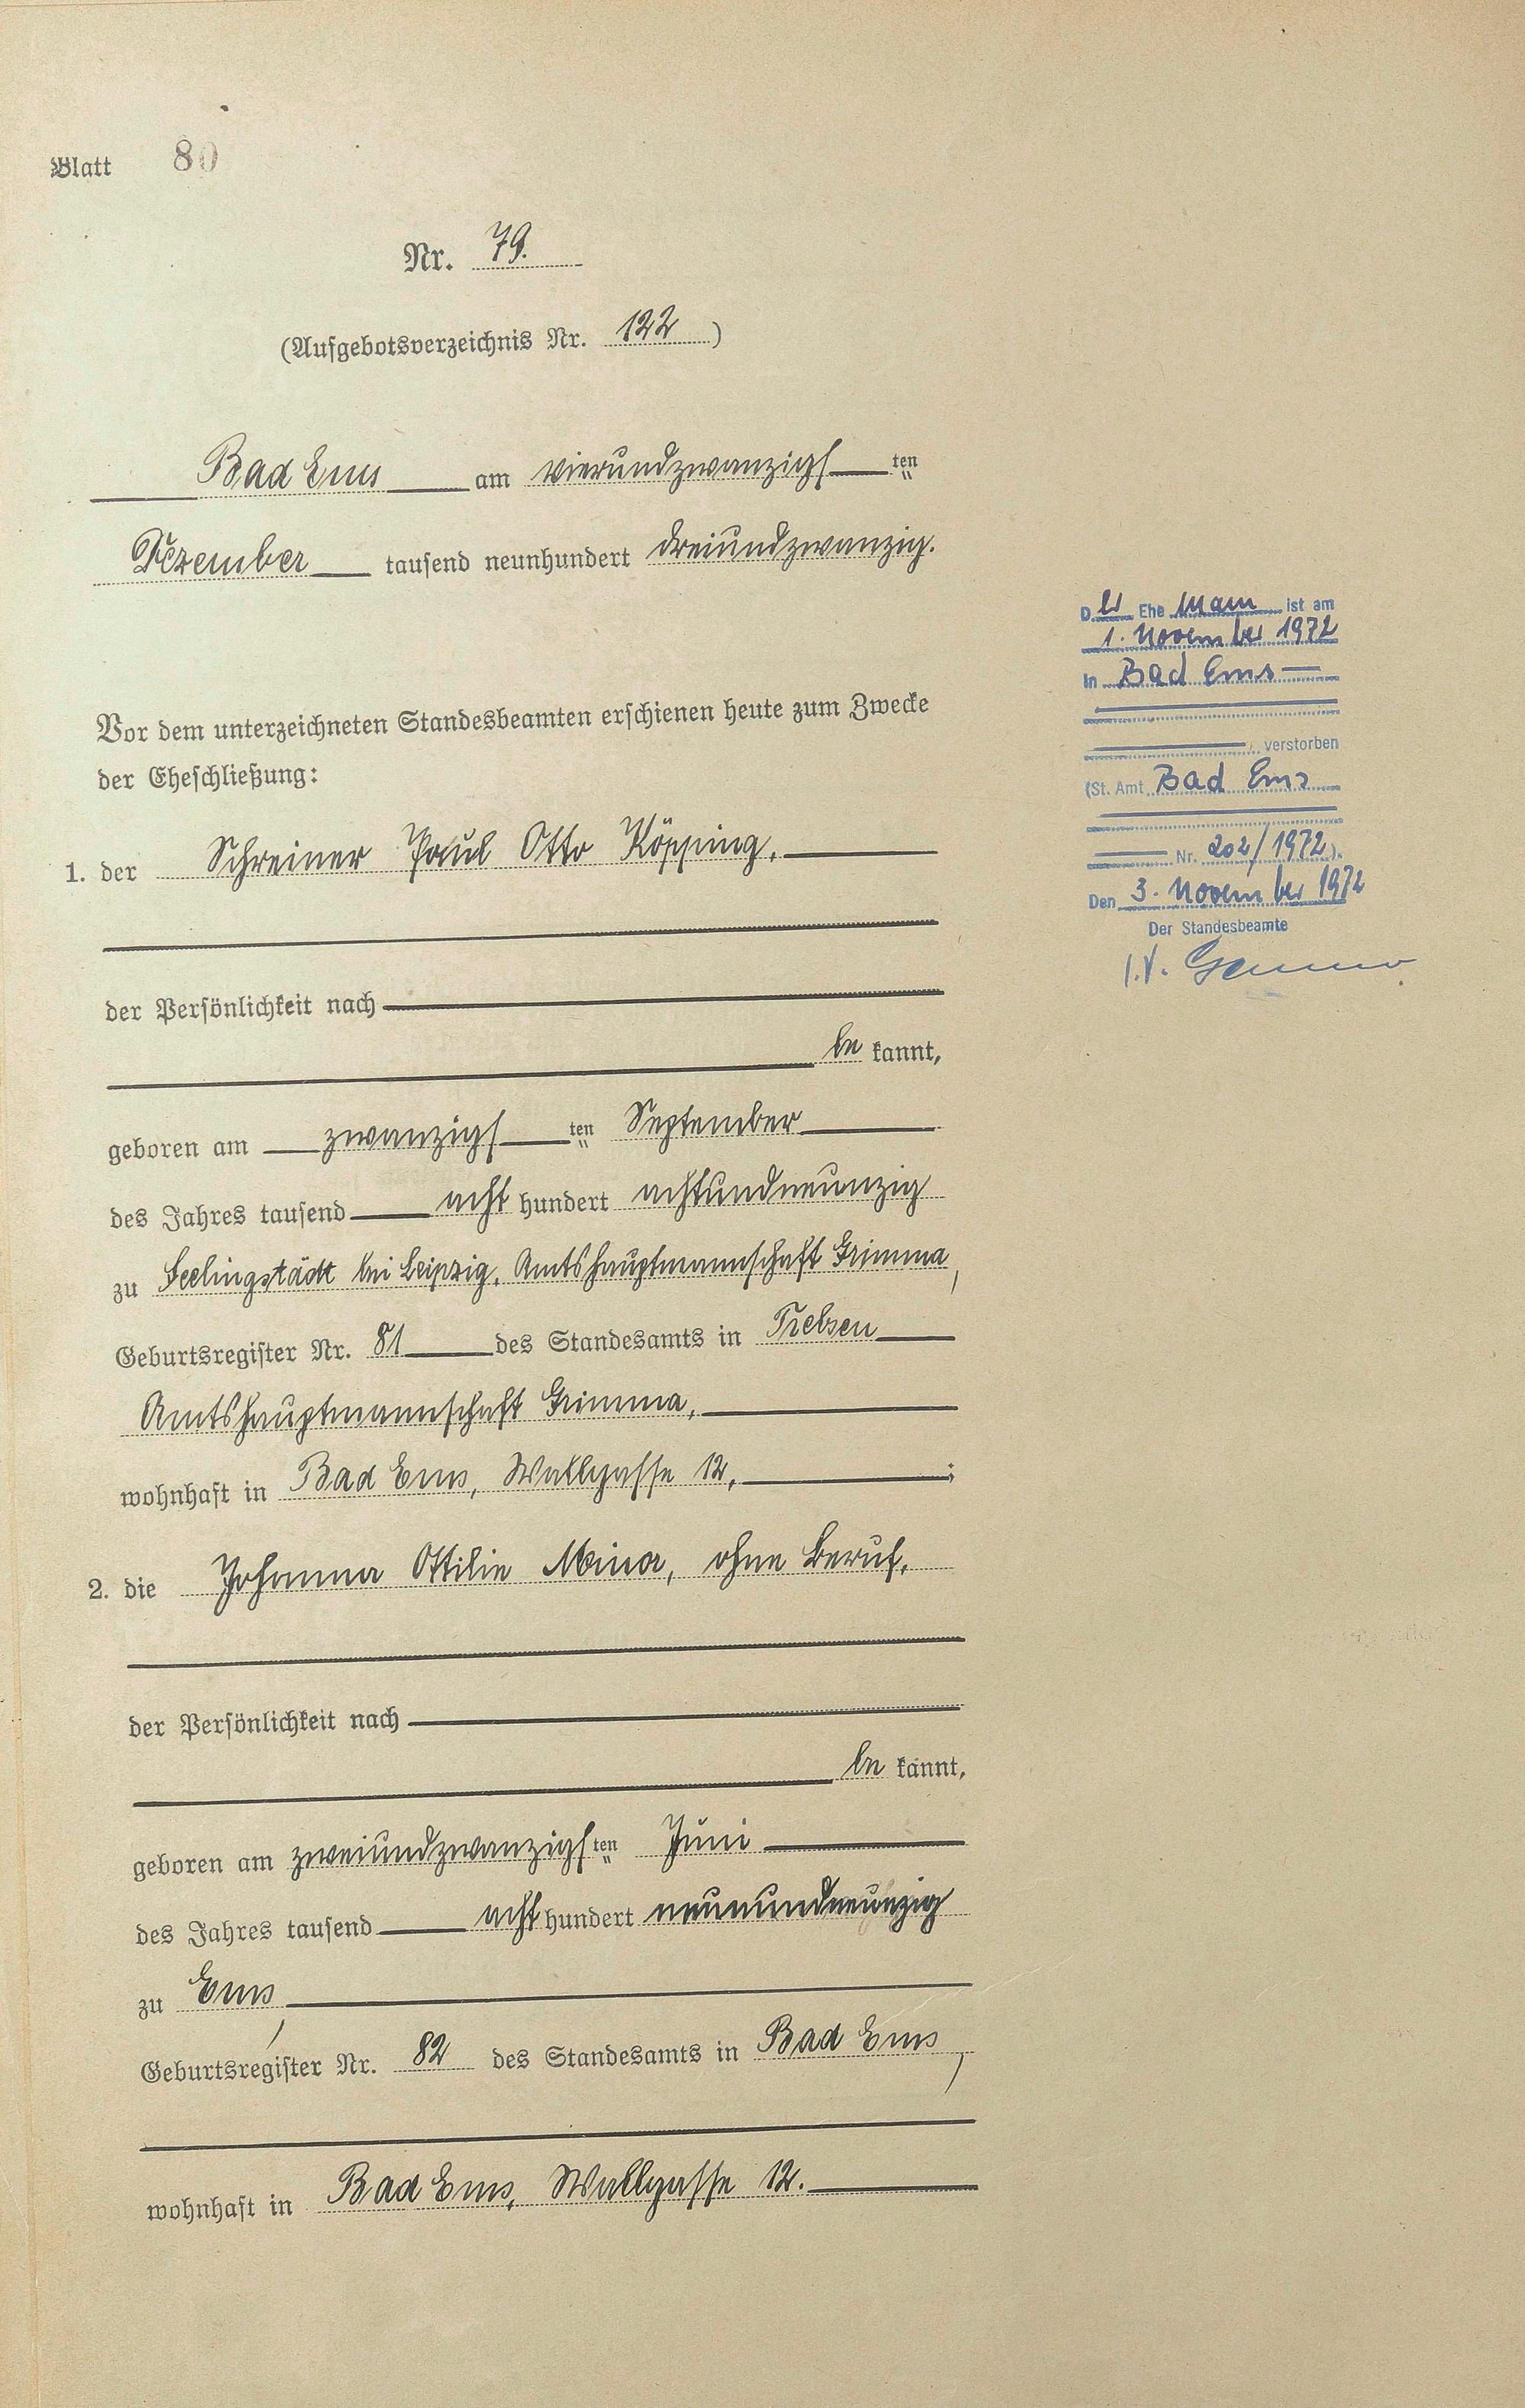 Blatt 80
Nr. 79.
(Aufgebotsverzeichnis Nr. 122)
Bad Ems am vierundzwanzigs ten
Dezember tausend neunhundert dreiundzwanzig.
Vor dem unterzeichneten Standesbeamten erschienen heute zum Zwecke
der Eheschließung:
1. der Schreiner Paul Otto Köpping,
der Persönlichkeit nach
be kannt,
geboren am zwanzigs ten September
des Jahres tausend acht hundert achtundneunzig
zu Seelingstädt bei Leipzig, Amtshauptmannschaft Grimma,
Geburtsregister Nr. 81 des Standesamts in Trebsen
Amtshauptmannschaft Grimma,
wohnhaft in Bad Ems, Wallgasse 12, ;
2. die Johanna Ottilie Minor, ohne Beruf,
der Persönlichkeit nach
be kannt,
geboren am zweiundzwanzigs ten Juni
des Jahres tausend acht hundert neunundneunzig
zu Ems,
Geburtsregister Nr. 82 des Standesamts in Bad Ems,
wohnhaft in Bad Ems, Wallgasse 12.
D er Ehe mann ist am
1. November 1972
in Bad Ems
, verstorben
(St. Amt Bad Ems
Nr. 202/1972).
Den 3. November 1972
Der Standesbeamte
I.V.